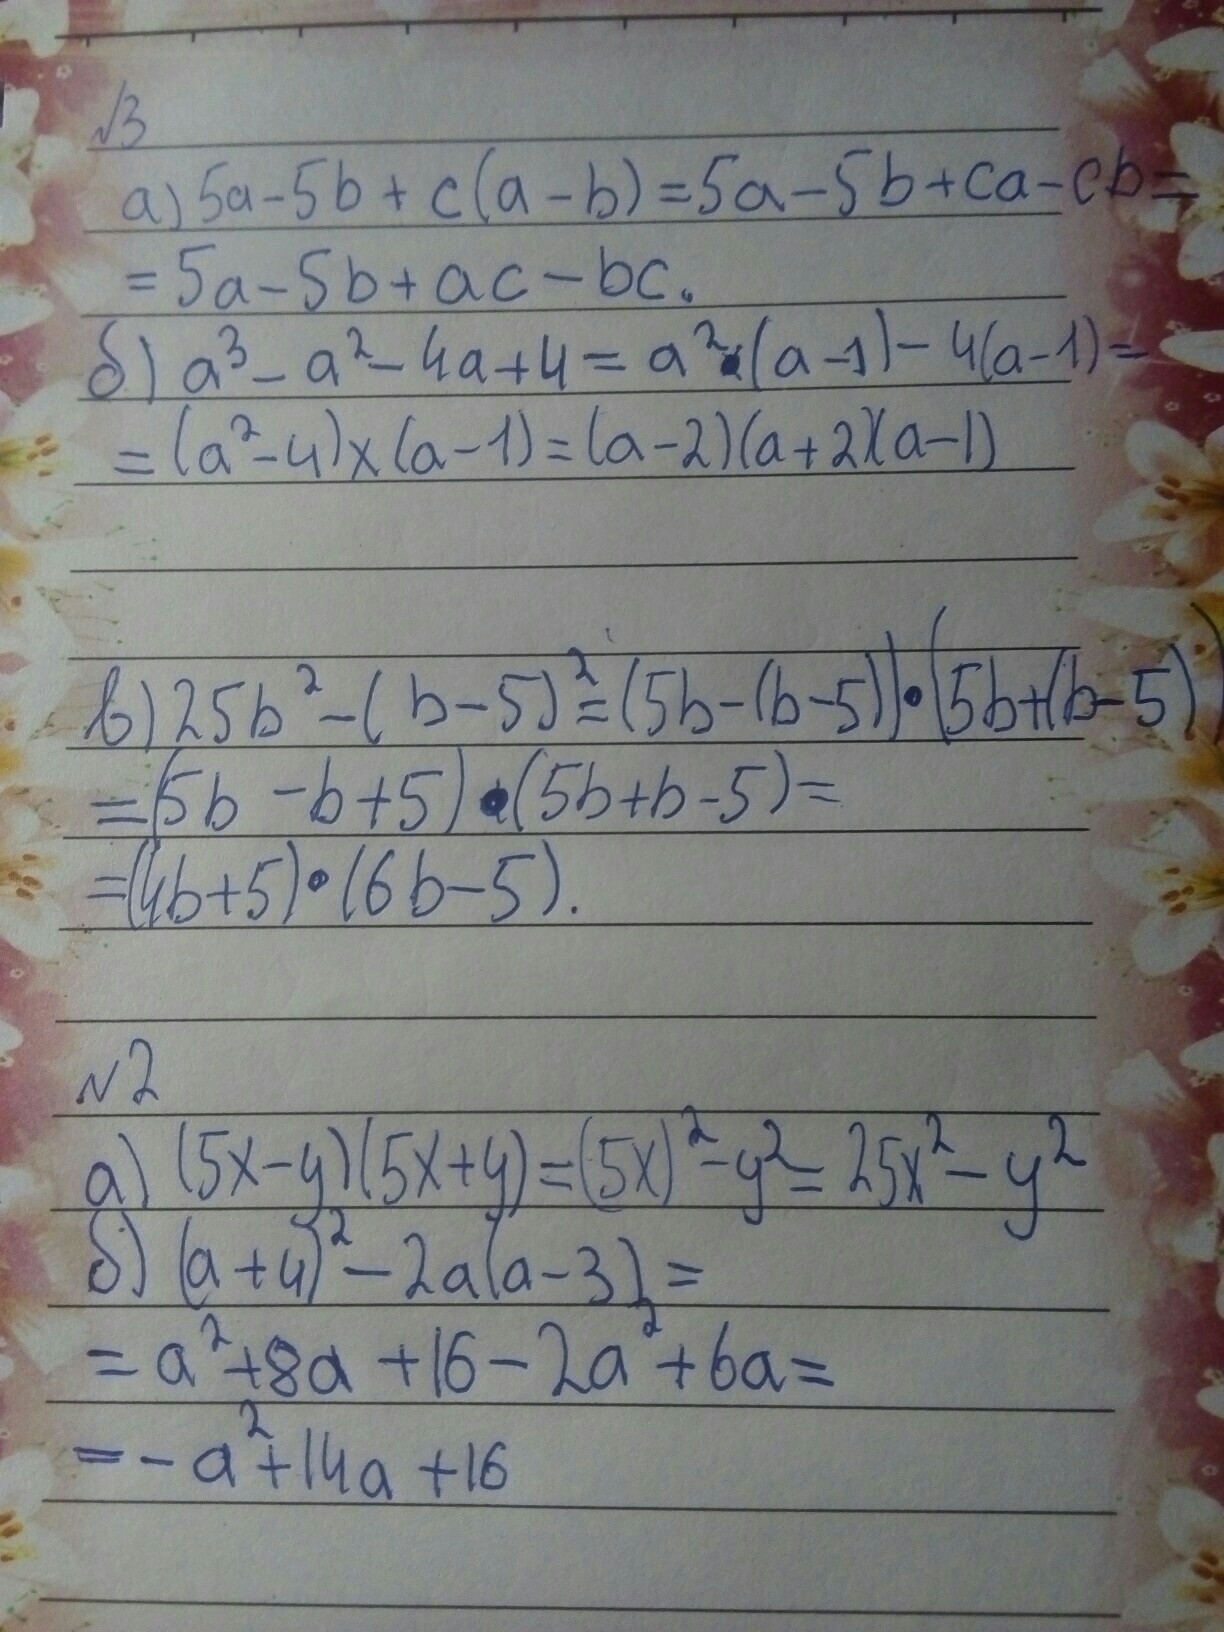 №3
а) 5a-5b+c(a-b)=5a-5b+ca-cb=
=5a-5b+ac-bc.
б) a³-a²-4a+4=a²•(a-1)-4(a-1)=
=(a²-4)×(a-1)=(a-2)(a+2)(a-1)
в) 25b²-(b-5)²=(5b-(b-5))•(5b+(b-5))
=(5b-b+5)•(5b+b-5)=
=(4b+5)•(6b-5).
№2
а) (5x-y)(5x+y)=(5x)²-y²=25x²-y²
б) (a+4)²-2a(a-3)=
=a²+8a+16-2a²+6a=
=-a²+14a+16